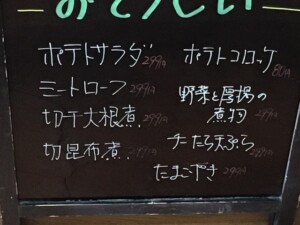 おそうざい
ポテトサラダ 299円
ミートローフ 299円
切干大根煮 299円
切昆布煮 299円
ポテトコロッケ 80円
野菜と厚揚の
煮物 299円
チーたら天ぷら 299円
たまごやき 299円